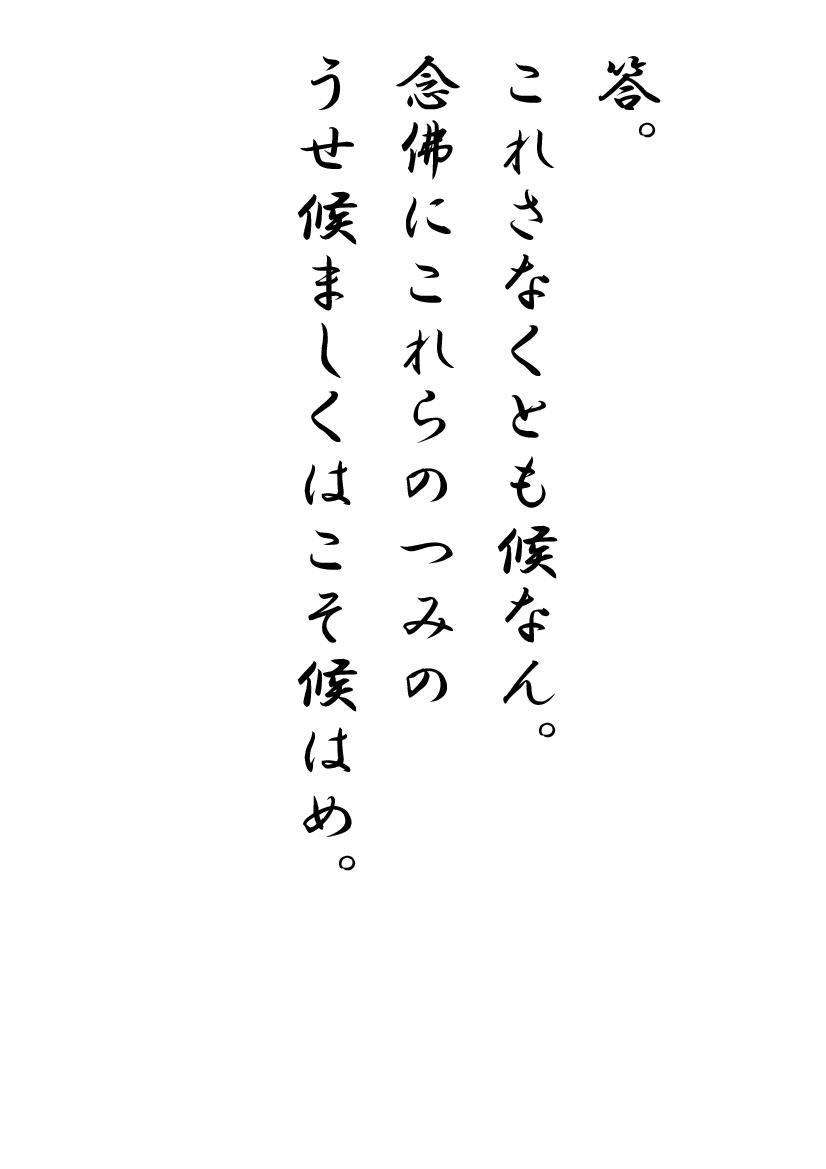 答。
これさなくとも候なん。
念佛にこれらのつみの
うせ候ましくはこそ候はめ。